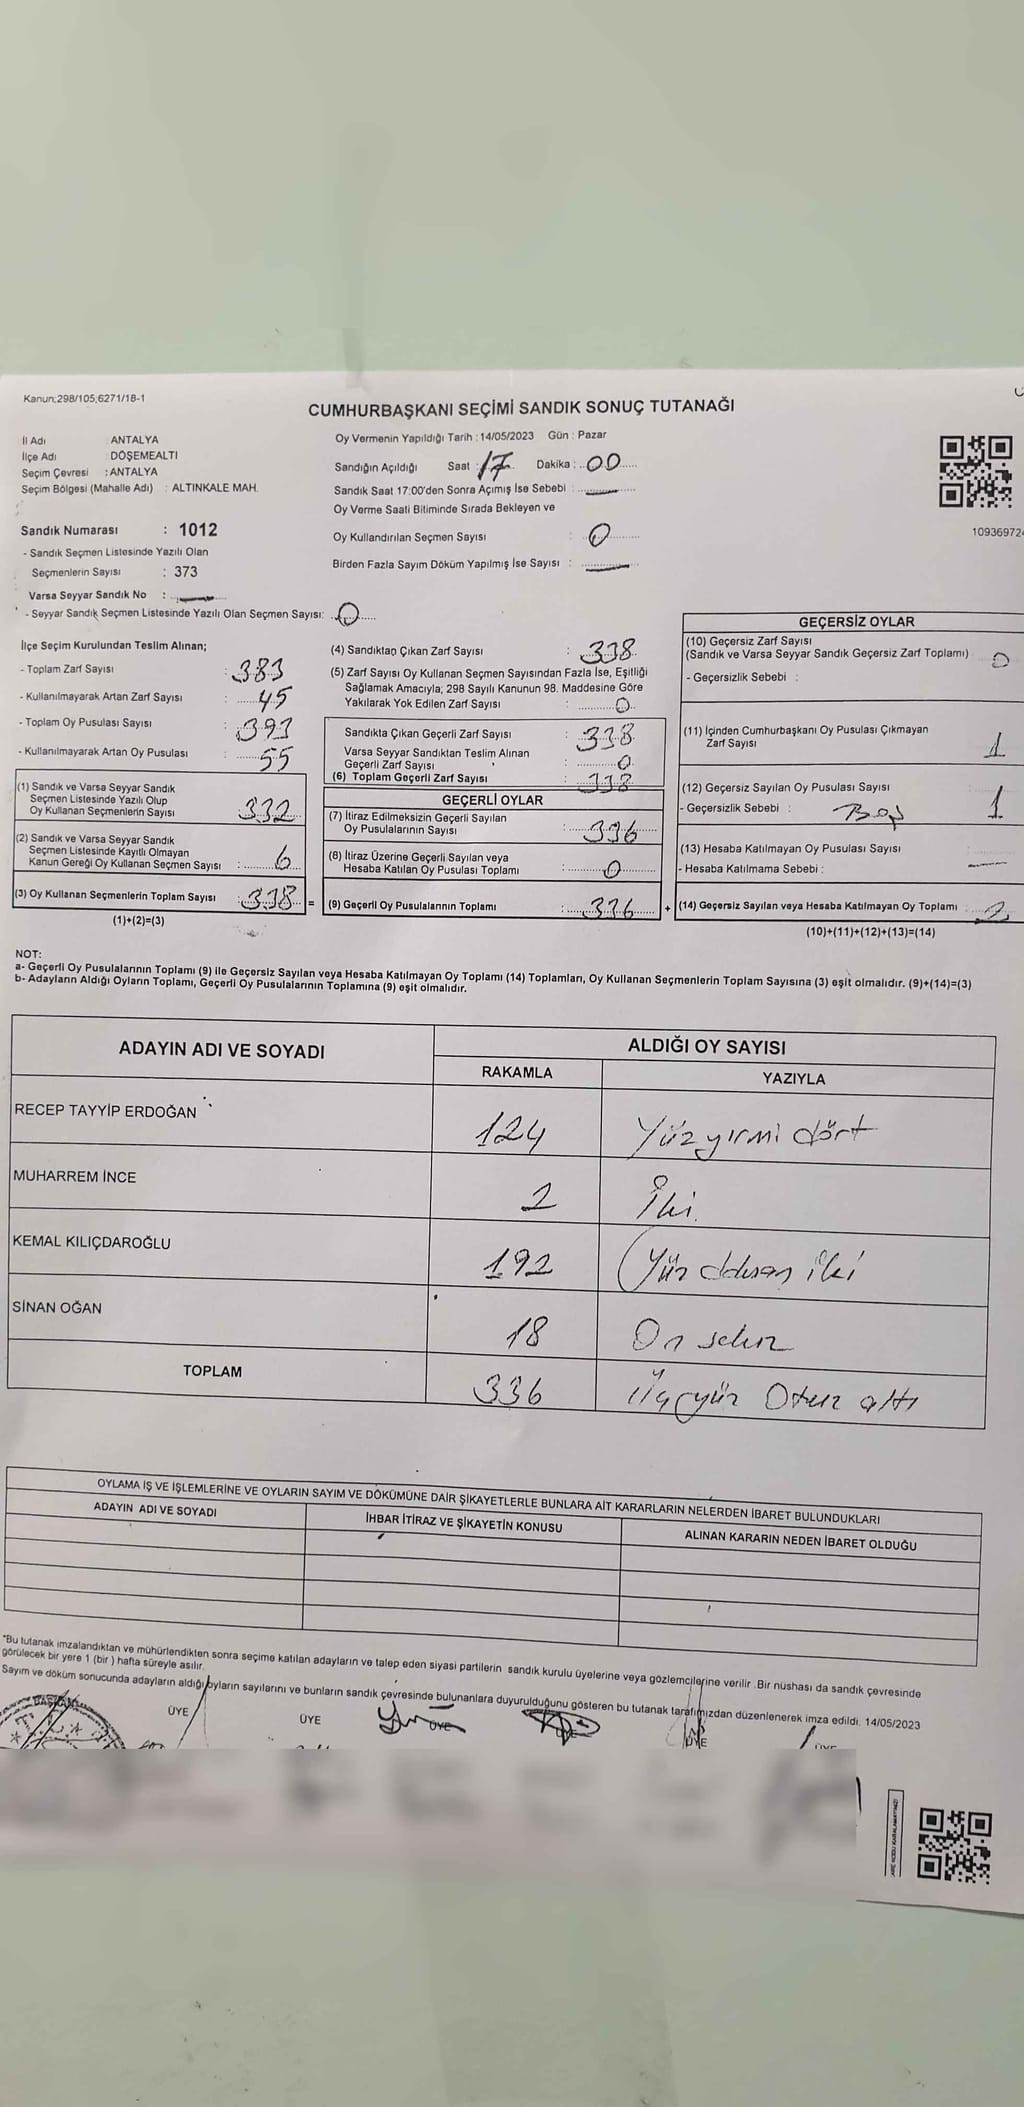 Kanun;298/105;6271/18-1
CUMHURBAŞKANI SEÇİMİ SANDIK SONUÇ TUTANAĞI
İl Adı : ANTALYA
İlçe Adı : DÖŞEMEALTI
Seçim Çevresi : ANTALYA
Seçim Bölgesi (Mahalle Adı) : ALTINKALE MAH.
Sandık Numarası : 1012
- Sandık Seçmen Listesinde Yazılı Olan
Seçmenlerin Sayısı : 373
Varsa Seyyar Sandık No :
- Seyyar Sandık Seçmen Listesinde Yazılı Olan Seçmen Sayısı: 0
Oy Vermenin Yapıldığı Tarih : 14/05/2023 Gün : Pazar
Sandığın Açıldığı Saat : 17 Dakika : 00
Sandık Saat 17:00'den Sonra Açımış İse Sebebi :
Oy Verme Saati Bitiminde Sırada Bekleyen ve
Oy Kullandırılan Seçmen Sayısı : 0
Birden Fazla Sayım Döküm Yapılmış İse Sayısı :
109369724
İlçe Seçim Kurulundan Teslim Alınan;
- Toplam Zarf Sayısı : 383
- Kullanılmayarak Artan Zarf Sayısı : 45
- Toplam Oy Pusulası Sayısı : 393
- Kullanılmayarak Artan Oy Pusulası : 55
(1) Sandık ve Varsa Seyyar Sandık
Seçmen Listesinde Yazılı Olup
Oy Kullanan Seçmenlerin Sayısı : 332
(2) Sandık ve Varsa Seyyar Sandık
Seçmen Listesinde Kayıtlı Olmayan
Kanun Gereği Oy Kullanan Seçmen Sayısı : 6
(3) Oy Kullanan Seçmenlerin Toplam Sayısı : 338 =
(1)+(2)=(3)
(4) Sandıktan Çıkan Zarf Sayısı : 338
(5) Zarf Sayısı Oy Kullanan Seçmen Sayısından Fazla İse, Eşitliği
Sağlamak Amacıyla; 298 Sayılı Kanunun 98. Maddesine Göre
Yakılarak Yok Edilen Zarf Sayısı : 0
Sandıkta Çıkan Geçerli Zarf Sayısı : 338
Varsa Seyyar Sandıktan Teslim Alınan
Geçerli Zarf Sayısı : 0
(6) Toplam Geçerli Zarf Sayısı : 338
GEÇERLİ OYLAR
(7) İtiraz Edilmeksizin Geçerli Sayılan
Oy Pusulalarının Sayısı : 336
(8) İtiraz Üzerine Geçerli Sayılan veya
Hesaba Katılan Oy Pusulası Toplamı : 0
(9) Geçerli Oy Pusulalarının Toplamı : 336 +
GEÇERSİZ OYLAR
(10) Geçersiz Zarf Sayısı
(Sandık ve Varsa Seyyar Sandık Geçersiz Zarf Toplamı) 0
- Geçersizlik Sebebi :
(11) İçinden Cumhurbaşkanı Oy Pusulası Çıkmayan
Zarf Sayısı 1
(12) Geçersiz Sayılan Oy Pusulası Sayısı 1
- Geçersizlik Sebebi : Boş
(13) Hesaba Katılmayan Oy Pusulası Sayısı
- Hesaba Katılmama Sebebi :
(14) Geçersiz Sayılan veya Hesaba Katılmayan Oy Toplamı : 2
(10)+(11)+(12)+(13)=(14)
NOT:
a- Geçerli Oy Pusulalarının Toplamı (9) ile Geçersiz Sayılan veya Hesaba Katılmayan Oy Toplamı (14) Toplamları, Oy Kullanan Seçmenlerin Toplam Sayısına (3) eşit olmalıdır. (9)+(14)=(3)
b- Adayların Aldığı Oyların Toplamı, Geçerli Oy Pusulalarının Toplamına (9) eşit olmalıdır.
ADAYIN ADI VE SOYADI ALDIĞI OY SAYISI
RAKAMLA YAZIYLA
RECEP TAYYİP ERDOĞAN 124 Yüzyirmi dört
MUHARREM İNCE 2 İki
KEMAL KILIÇDAROĞLU 192 Yüz doksan iki
SİNAN OĞAN 18 On sekiz
TOPLAM 336 Üçyüz Otuz altı
OYLAMA İŞ VE İŞLEMLERİNE VE OYLARIN SAYIM VE DÖKÜMÜNE DAİR ŞİKAYETLERLE BUNLARA AİT KARARLARIN NELERDEN İBARET BULUNDUKLARI
ADAYIN ADI VE SOYADI İHBAR İTİRAZ VE ŞİKAYETİN KONUSU ALINAN KARARIN NEDEN İBARET OLDUĞU
*Bu tutanak imzalandıktan ve mühürlendikten sonra seçime katılan adayların ve talep eden siyasi partilerin sandık kurulu üyelerine veya gözlemcilerine verilir .Bir nüshası da sandık çevresinde
görülecek bir yere 1 (bir ) hafta süreyle asılır.
Sayım ve döküm sonucunda adayların aldığı oyların sayılarını ve bunların sandık çevresinde bulunanlara duyurulduğunu gösteren bu tutanak tarafımızdan düzenlenerek imza edildi. 14/05/2023
BAŞKAN ÜYE ÜYE ÜYE ÜYE ÜYE ÜYE